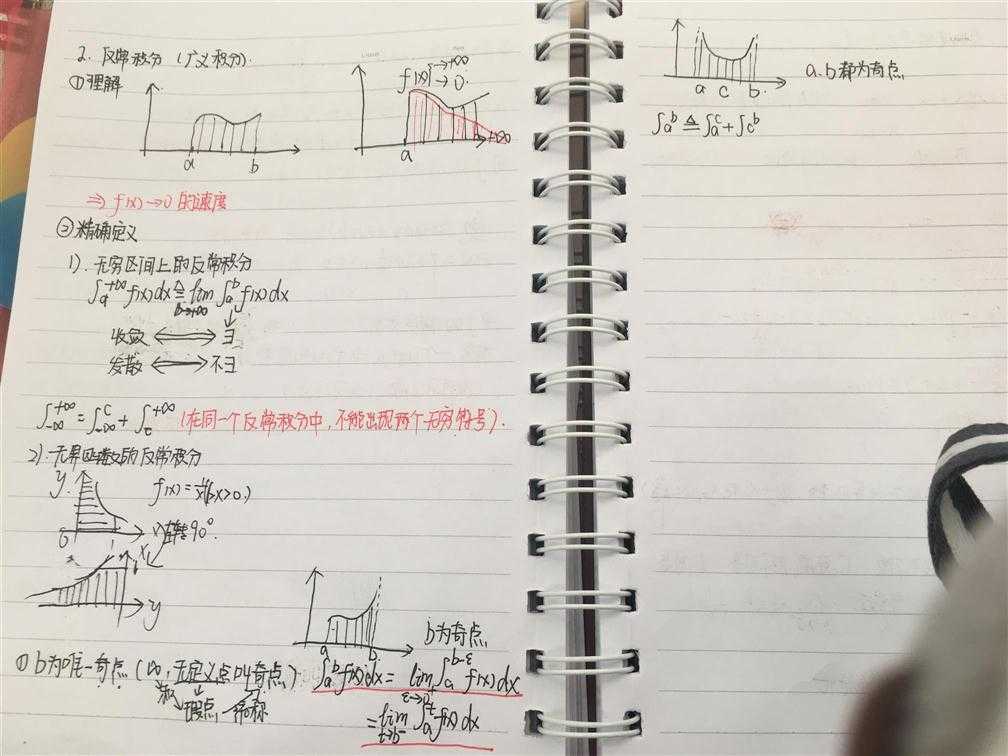 2. 反常积分 (广义积分).
①理解
a b
f(x) x→+∞ → 0
a b→+∞
⇒ f(x)→0 的速度
②精确定义
1). 无穷区间上的反常积分
∫a^{+∞} f(x)dx ≜ lim_{b→+∞} ∫a^b f(x)dx
收敛 ⟺ ∃
发散 ⟺ 不∃
∫_{-∞}^{+∞} = ∫_{-∞}^{C} + ∫_{C}^{+∞} (在同一个反常积分中, 不能出现两个无穷符号).
2). 无界函数的反常积分
y
f(x) = 1/x (x>0.)
0 x
转90°
x
y
a b
b为奇点
① b为唯一奇点 (∞, 无定义点叫奇点)
瑕点
∫a^b f(x)dx = lim_{ε→0+} ∫a^{b-ε} f(x)dx
= lim_{t→b-} ∫a^t f(x)dx
a c b.
a.b都为奇点
∫a^b ≜ ∫a^c + ∫c^b